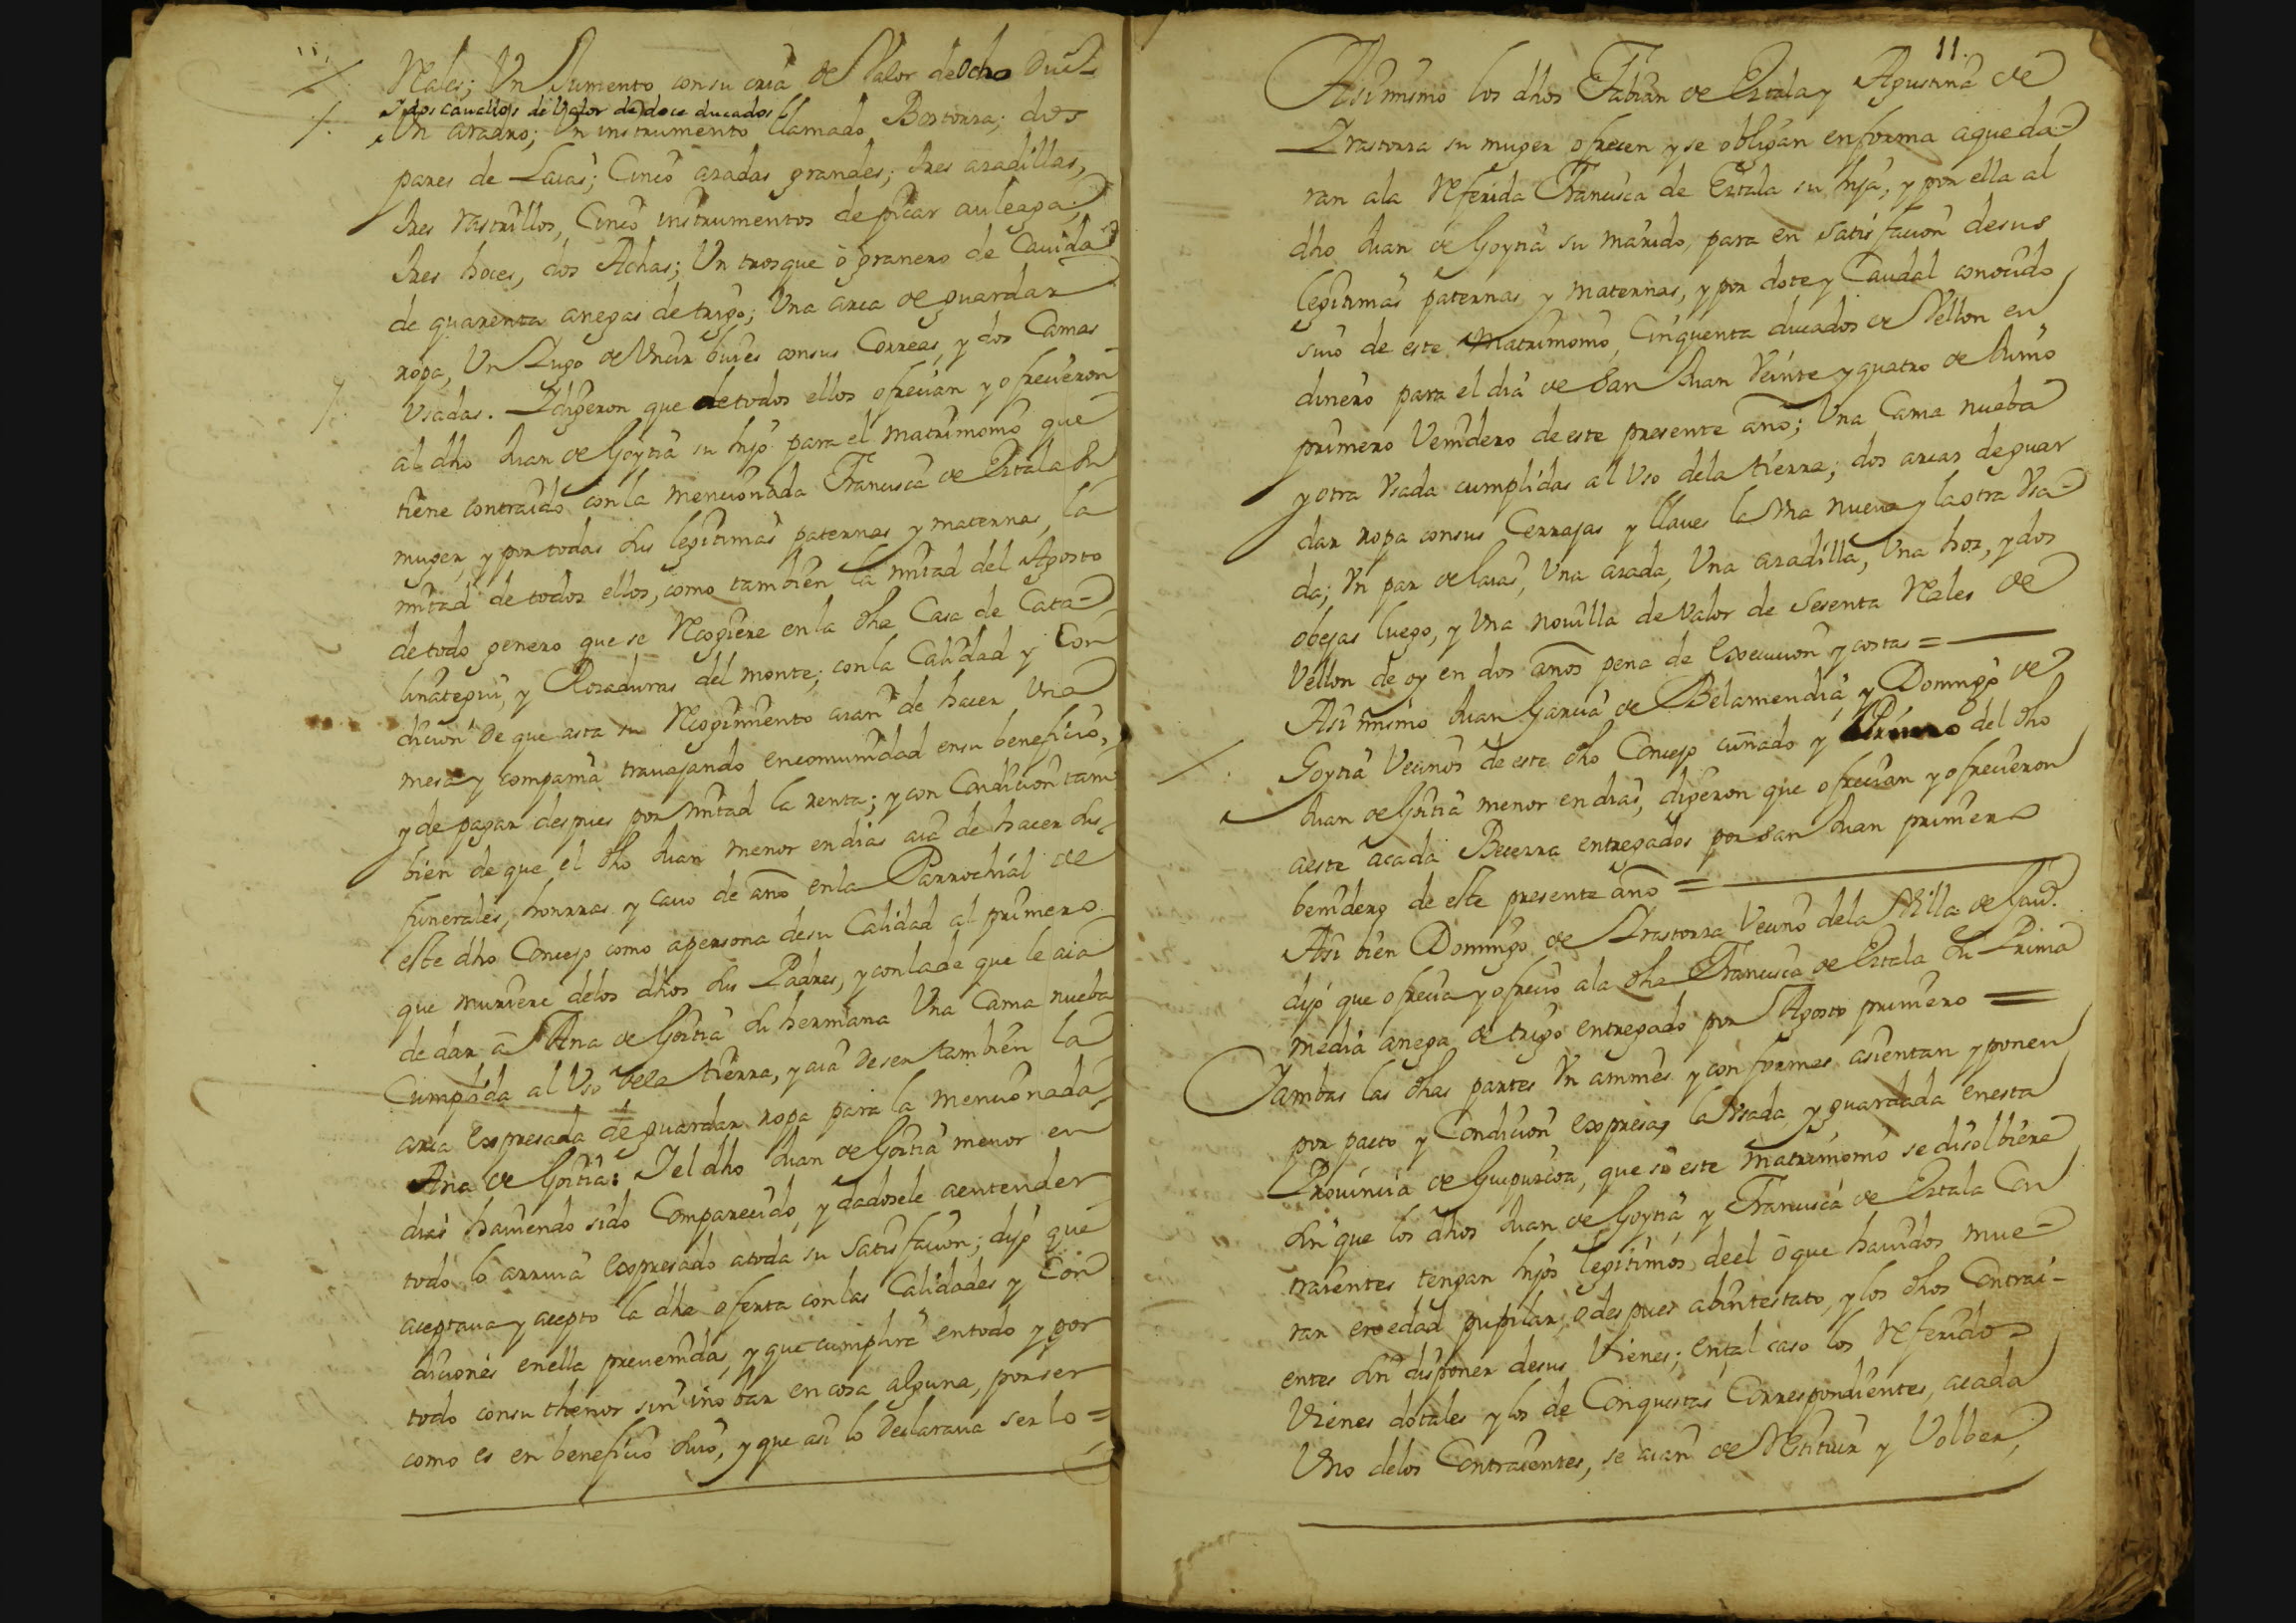 Reales; Un Jumento con su cria de Valor de Ocho Duc.s
y dos cauallos de Valor de doce ducados
Un aradro; Un instrumento llamado Bostorra; dos
pares de Laias; Cinco azadas grandes; tres azadillas,
tres rastrillos, Cinco instrumentos de picar auleaga;
tres hoces, dos Achas; Un trosque ò granero de Cauida
de quarenta anegas de trigo; Una arca de guardar
ropa, Un Jugo de Uncir bueies con sus Correas, y dos Camas
Usadas. I digeron que de todos ellos ofrecian y ofrecieron
al dho Juan de Goytia su hijo para el matrimonio que
tiene contraido con la mencionada Francisca de Ertala su
muger, y por todas sus legitimas paternas y maternas, la
mitad de todos ellos, como tambien la mitad del Agosto
de todo genero que se Recogiere en la dha Casa de Cata-
linategui, y Rozaduras del monte; con la Calidad y Con
dicion de que asta su Recogimiento aian de hacer Una
mesa y compania trauajando en comunidad en su beneficio,
y de pagar despues por mitad la renta; y con Condicion tam
bien de que el dho Juan menor en dias aia de hacer sus
funerales, honrras y cauo de año en la Parrochial de
este dho Concejo como a persona de su Calidad al primero
que muriere de los dhos sus Padres, y con la de que le aia
de dar à Ana de Goitia su hermana Una Cama nueba
Cumplida al Uso de la tierra, y aia de ser tambien la
arca Expresada de guardar ropa para la mencionada
Ana de Goitia: I el dho Juan de Goitia menor en
dias hauiendo sido Comparecido, y dadosele a entender
todo lo arriua Expresado a toda su Satisfacion; dijo que
aceptaua y acepto la dha oferta con las Calidades y Con
diciones en ella preuenidas, y que cumplirà en todo y por
todo con su thenor sin inobar en cosa alguna, por ser
como es en beneficio suio, y que asi lo Declaraua ser lo=
11.
Asi mismo los dhos Fabian de Ertala y Agustina de
Irastorza su muger ofrecen y se obligan en forma a que da-
ran a la referida Francisca de Ertala su hija, y por ella al
dho Juan de Goytia su marido, para en satisfacion de sus
legitimas paternas y maternas, y por dote y Caudal conocido
suio de este Matrimonio, Cinquenta ducados de Vellon en
dinero para el dia de San Juan Veinte y quatro de Junio
primero Venidero de este presente año; Una Cama nueba
y otra Usada cumplidas al Uso de la tierra; dos arcas de guar
dar ropa con sus Cerrajas y llaues la Una nueua y la otra Usa-
da; Un par de laias, Una azada, Una azadilla, Una hoz, y dos
obejas luego, y Una nouilla de Valor de Sesenta Reales de
Vellon de oy en dos años pena de Execucion y costas =
Asi mismo Juan Garcia de Belamendia, y Domingo de
Goytia Vecinos de este dho Concejo cuñado y Primo del dho
Juan de Goitia menor en dias, digeron que ofrecian y ofrecieron
a este à cada Becerra entregados por San Juan primero
benidero de este presente año =
Asi bien Domingo de Irastorza Vecino de la Villa de Gau.a
dijo que ofrecia y ofrecio a la dha Francisca de Ertala su Prima
media anega de trigo entregado por Agosto primero =
I ambas las dhas partes Unanimes y conformes asientan y ponen
por pacto y Condicion expresa, la Usada y guardada en esta
Prouincia de Guipuzcoa, que si este Matrimonio se disolbiere
sin que los dhos Juan de Goytia y Francisca de Ertala Con
traientes tengan hijos legitimos de el ò que hauidos mue-
ran en edad pupilar, ò despues abintestato, y los dhos Contrai-
entes sin disponer de sus Vienes; en tal caso los referidos
Vienes dotales y los de Conquistas Correspondientes, a cada
Uno de los Contraientes, se aian de Restituir y Volber,